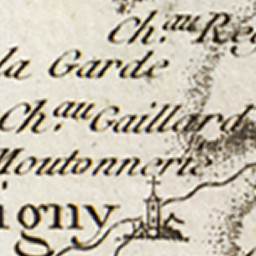 Ch.au Reg
la Garde
Ch.au Gaillard
Moutonnerie
igny